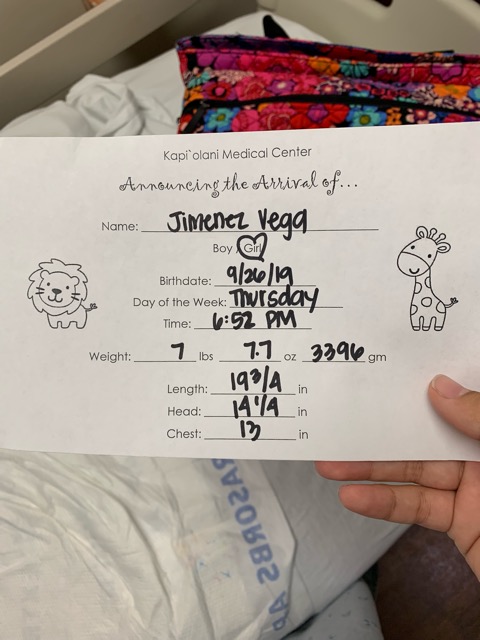 Kapi`olani Medical Center
Announcing the Arrival of...
Name: Jimenez Vega
Boy Girl
Birthdate: 9/26/19
Day of the Week: Thursday
Time: 6:52 PM
Weight: 7 lbs 7.7 oz 3396 gm
Length: 19 3/4 in
Head: 14 1/4 in
Chest: 13 in
SBROSA